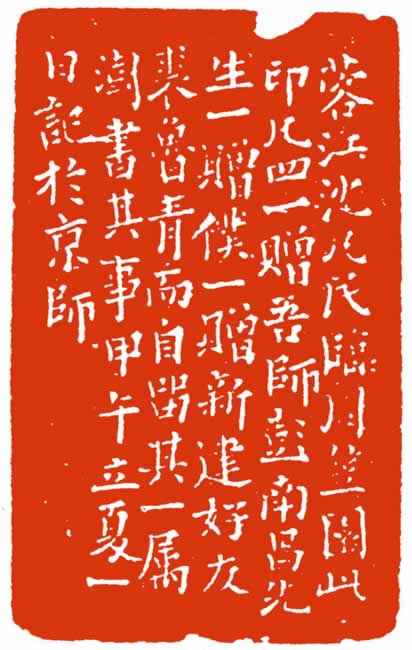 蓉江沈凡民臨此
印凡四一贈吾師彭南昌先
生一贈僕一贈新建好友
裘魯青而自留其一属
澍書其事甲午立夏一
日記於京師